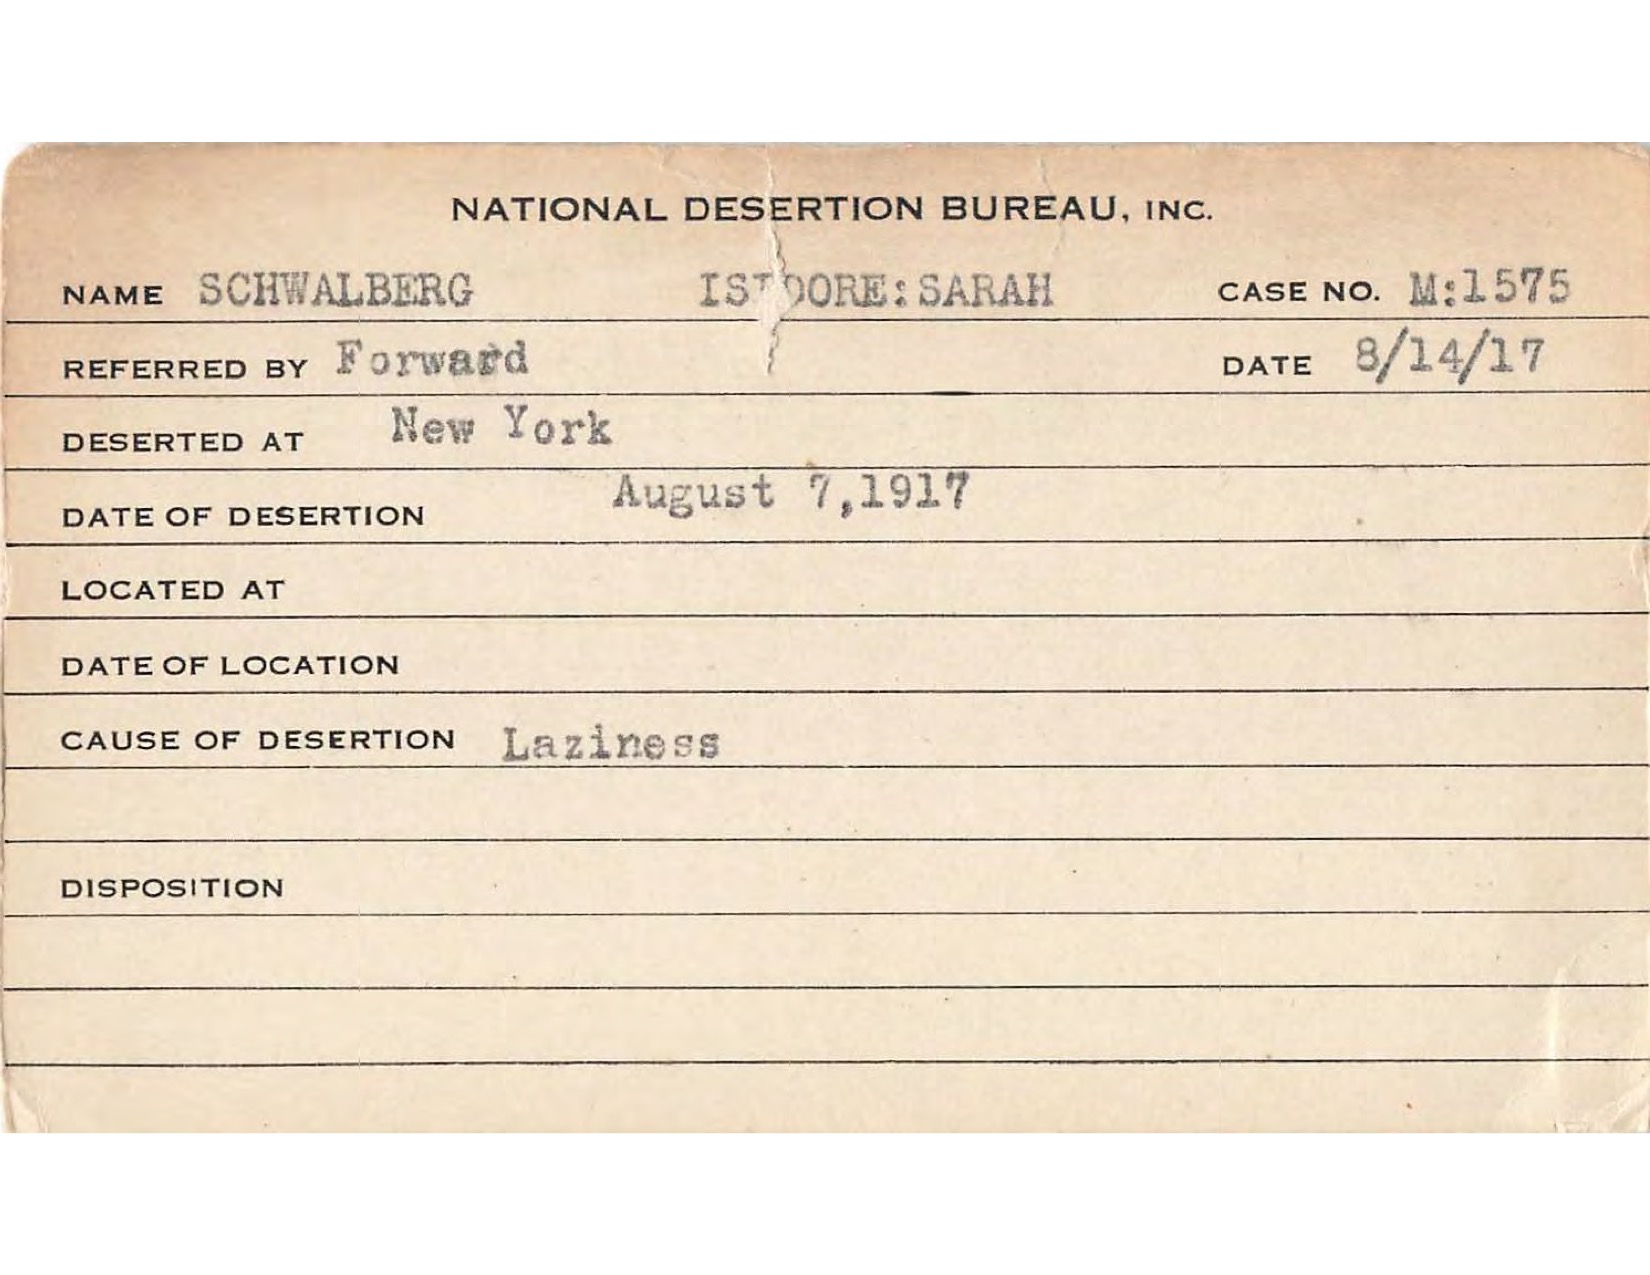 NATIONAL DESERTION BUREAU, INC.
NAME SCHWALBERG ISIDORE:SARAH CASE NO. M:1575
REFERRED BY Forward DATE 8/14/17
DESERTED AT New York
DATE OF DESERTION August 7,1917
LOCATED AT
DATE OF LOCATION
CAUSE OF DESERTION Laziness
DISPOSITION